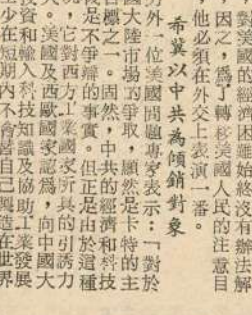 美國的經濟難始終沒有辦法解
，因之，爲了轉移美國人民的注意目
，他必須在外交上表演一番。
希冀以中共為傾銷對象
另外一位美國問題專家表示：「對於
國大陸市場的爭取，顯然是卡特的主
目標之一。固然，中共的經濟和科技
後是不爭辯的事實。但正是由於這種
況，它對西方工業國家所具的引誘力
大。美國及西歐國家認爲，向中國大
投資和輸入科技知識及協助工業發展
至少在短期內不會替自己製造在世界